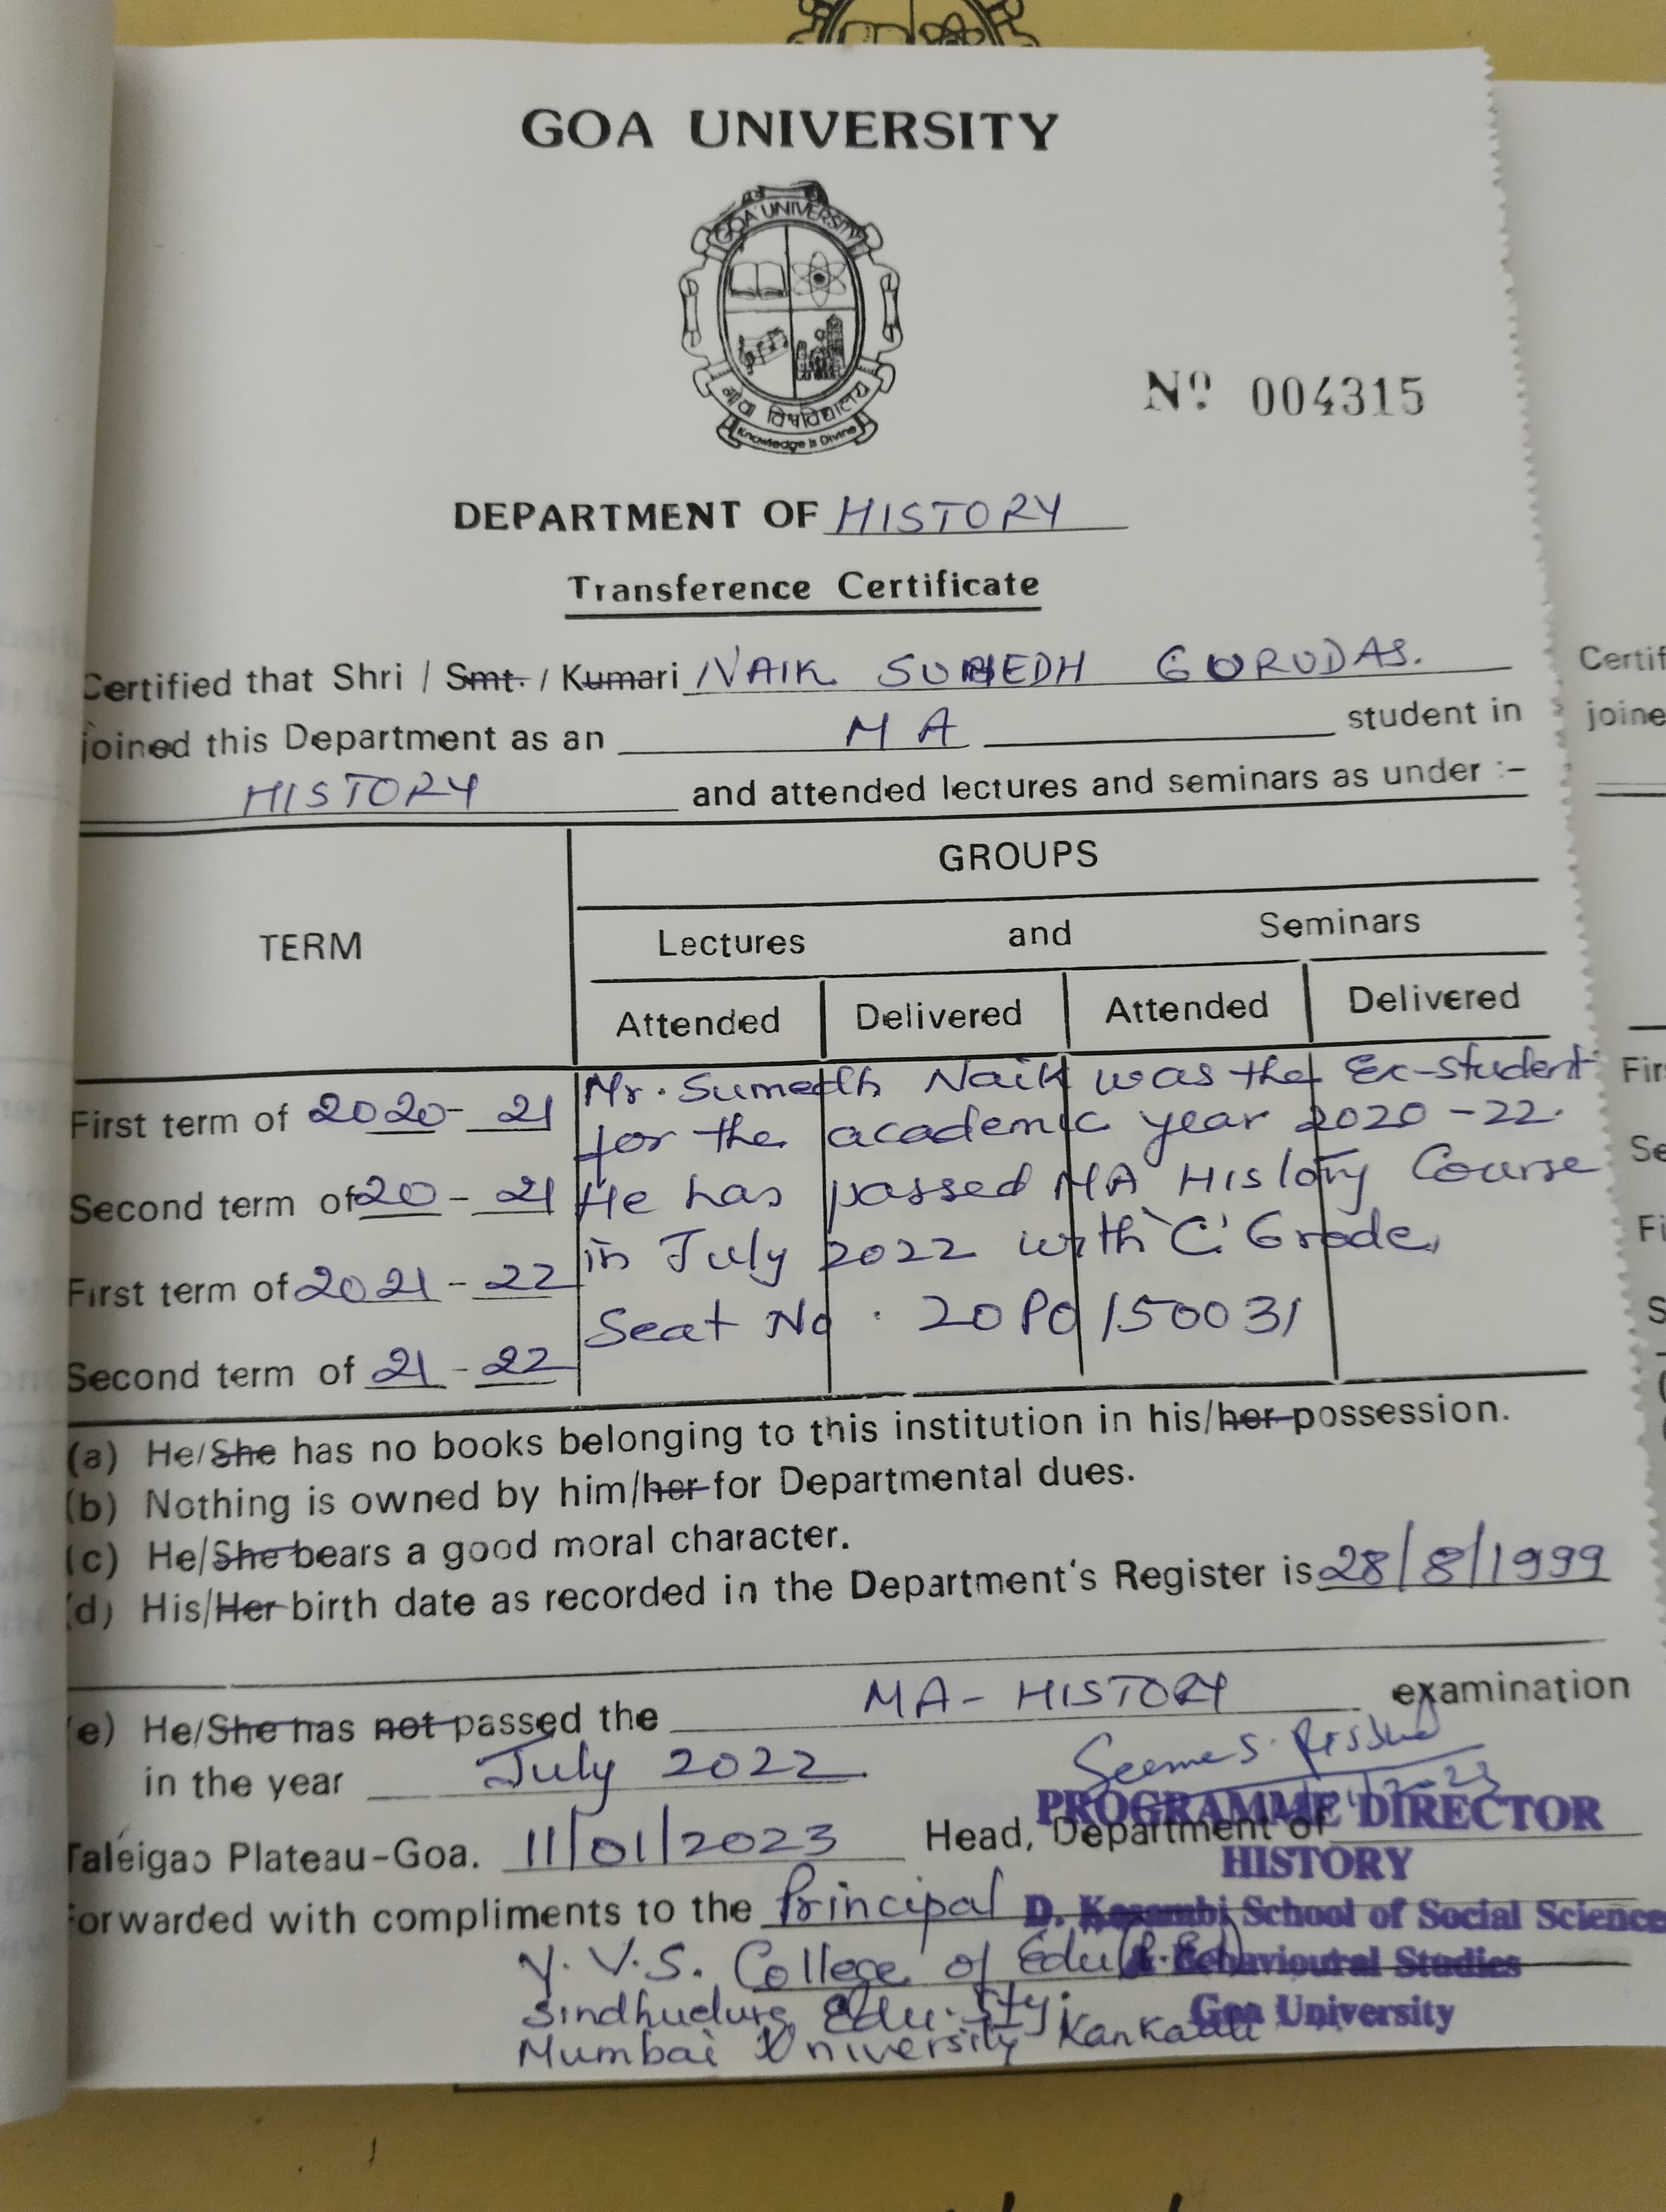 GOA UNIVERSITY
GOA UNIVERSITY
गोंय विश्वविद्यालय
Knowledge is Divine
Nº 004315
DEPARTMENT OF HISTORY
Transference Certificate
Certified that Shri / Smt. / Kumari NAIK SUMEDH GURUDAS.
joined this Department as an M A student in
HISTORY and attended lectures and seminars as under :-
GROUPS
TERM Lectures and Seminars
Attended Delivered Attended Delivered
First term of 2020-21 Mr. Sumedh Naik was the Ex-student
for the academic year 2020-22.
Second term of 20-21 He has passed MA History Course
First term of 2021-22 in July 2022 with 'C' Grade.
Seat No. 20PO150031
Second term of 21-22
(a) He/She has no books belonging to this institution in his/her possession.
(b) Nothing is owned by him/her for Departmental dues.
(c) He/She bears a good moral character.
(d) His/Her birth date as recorded in the Department's Register is 28/8/1999
(e) He/She has not passed the MA-HISTORY examination
in the year July 2022.
Taleigao Plateau-Goa. 11/01/2023 Head, Department of
PROGRAMME DIRECTOR
HISTORY
Forwarded with compliments to the Principal
D. Kosambi School of Social Science
& Behavioural Studies
Goa University
Y. V. S. College of Edu (B.Ed)
Sindhudurg Edu.
Mumbai University
Certif
joine
Fir
Se
Fi
S